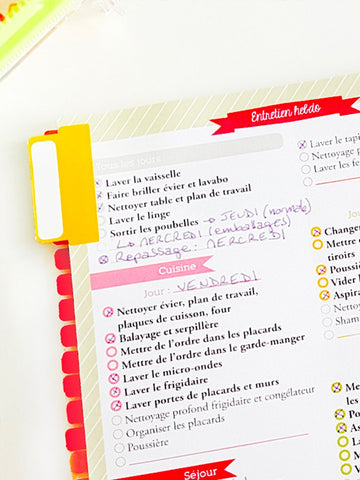 Entretien hebdo
Tous les jours
Laver la vaisselle
Faire briller évier et lavabo
Nettoyer table et plan de travail
Laver le linge
Sortir les poubelles → JEUDI (normale)
↳ MERCREDI (emballages)
Repassage : MERCREDI
Cuisine
Jour : VENDREDI
Nettoyer évier, plan de travail,
plaques de cuisson, four
Balayage et serpillère
Mettre de l'ordre dans les placards
Mettre de l'ordre dans le garde-manger
Laver le micro-ondes
Laver le frigidaire
Laver portes de placards et murs
Nettoyage profond frigidaire et congélateur
Organiser les placards
Poussière
Séjour
Laver le tapi
Nettoyage
Laver les fe
Jour
Changer
Mettre
tiroirs
Poussiè
Vider l
Aspira
Nettoy
Sham
Mett
les
Po
As
La
M
Vi